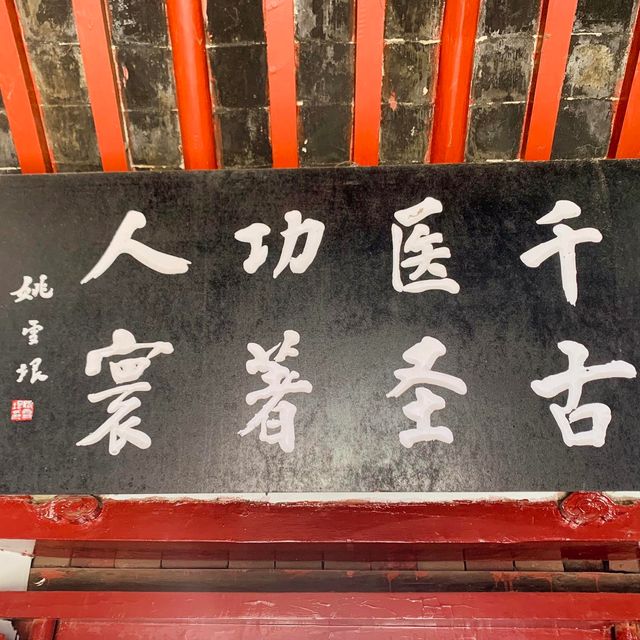 千古
医圣
功著
人寰
姚雪垠